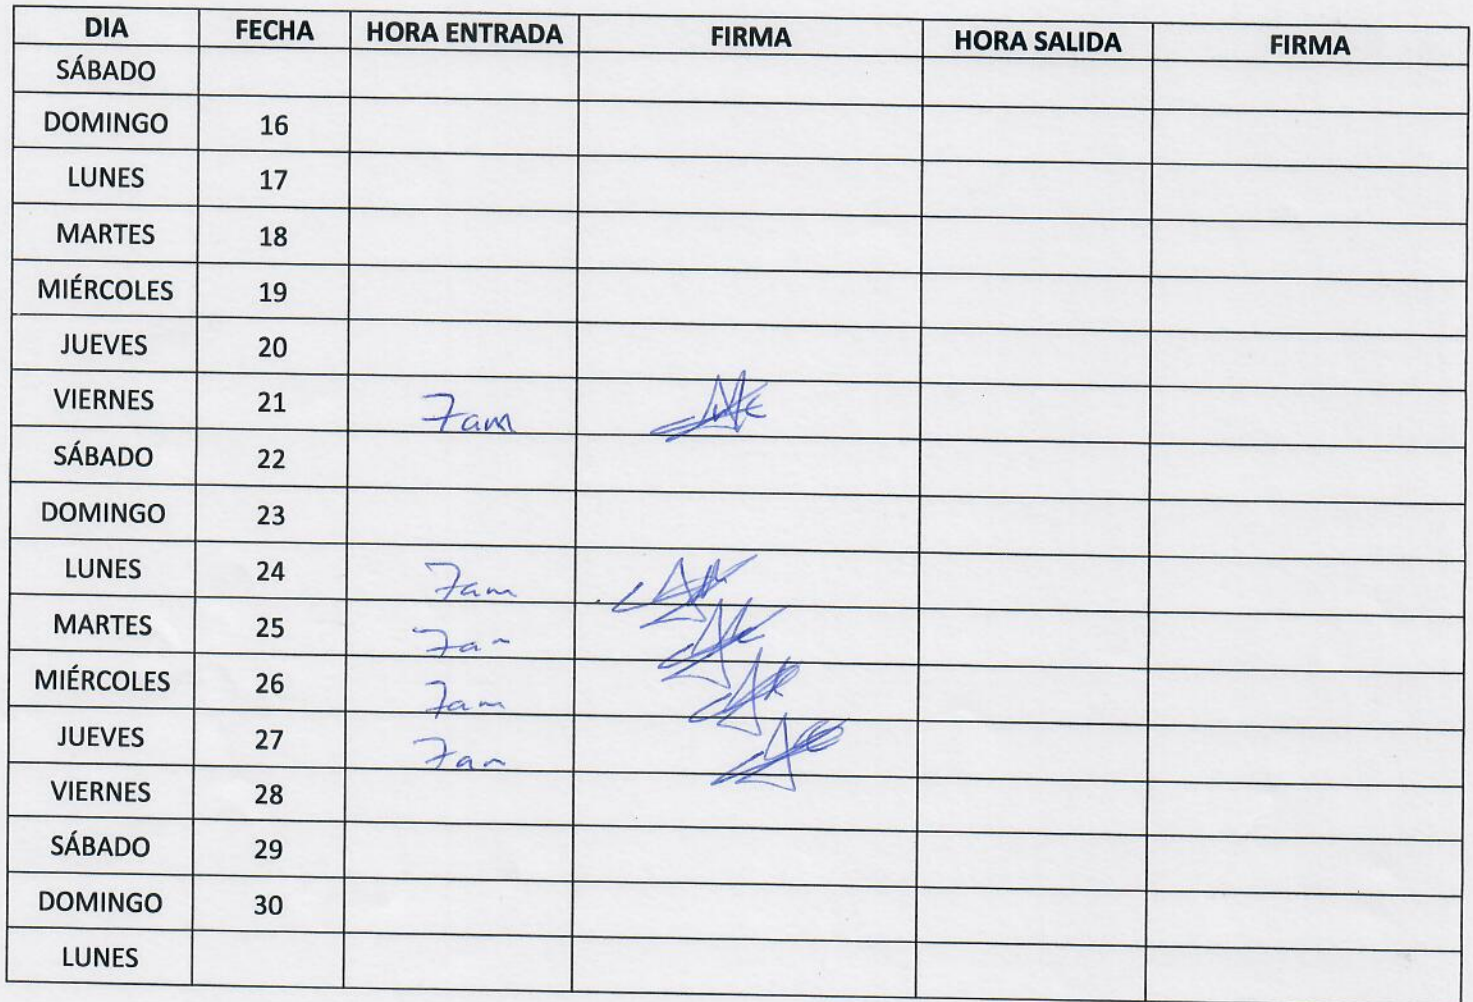 DIA FECHA HORA ENTRADA FIRMA HORA SALIDA FIRMA
SÁBADO
DOMINGO 16
LUNES 17
MARTES 18
MIÉRCOLES 19
JUEVES 20
VIERNES 21 7am
SÁBADO 22
DOMINGO 23
LUNES 24 7am
MARTES 25 7am
MIÉRCOLES 26 7am
JUEVES 27 7am
VIERNES 28
SÁBADO 29
DOMINGO 30
LUNES